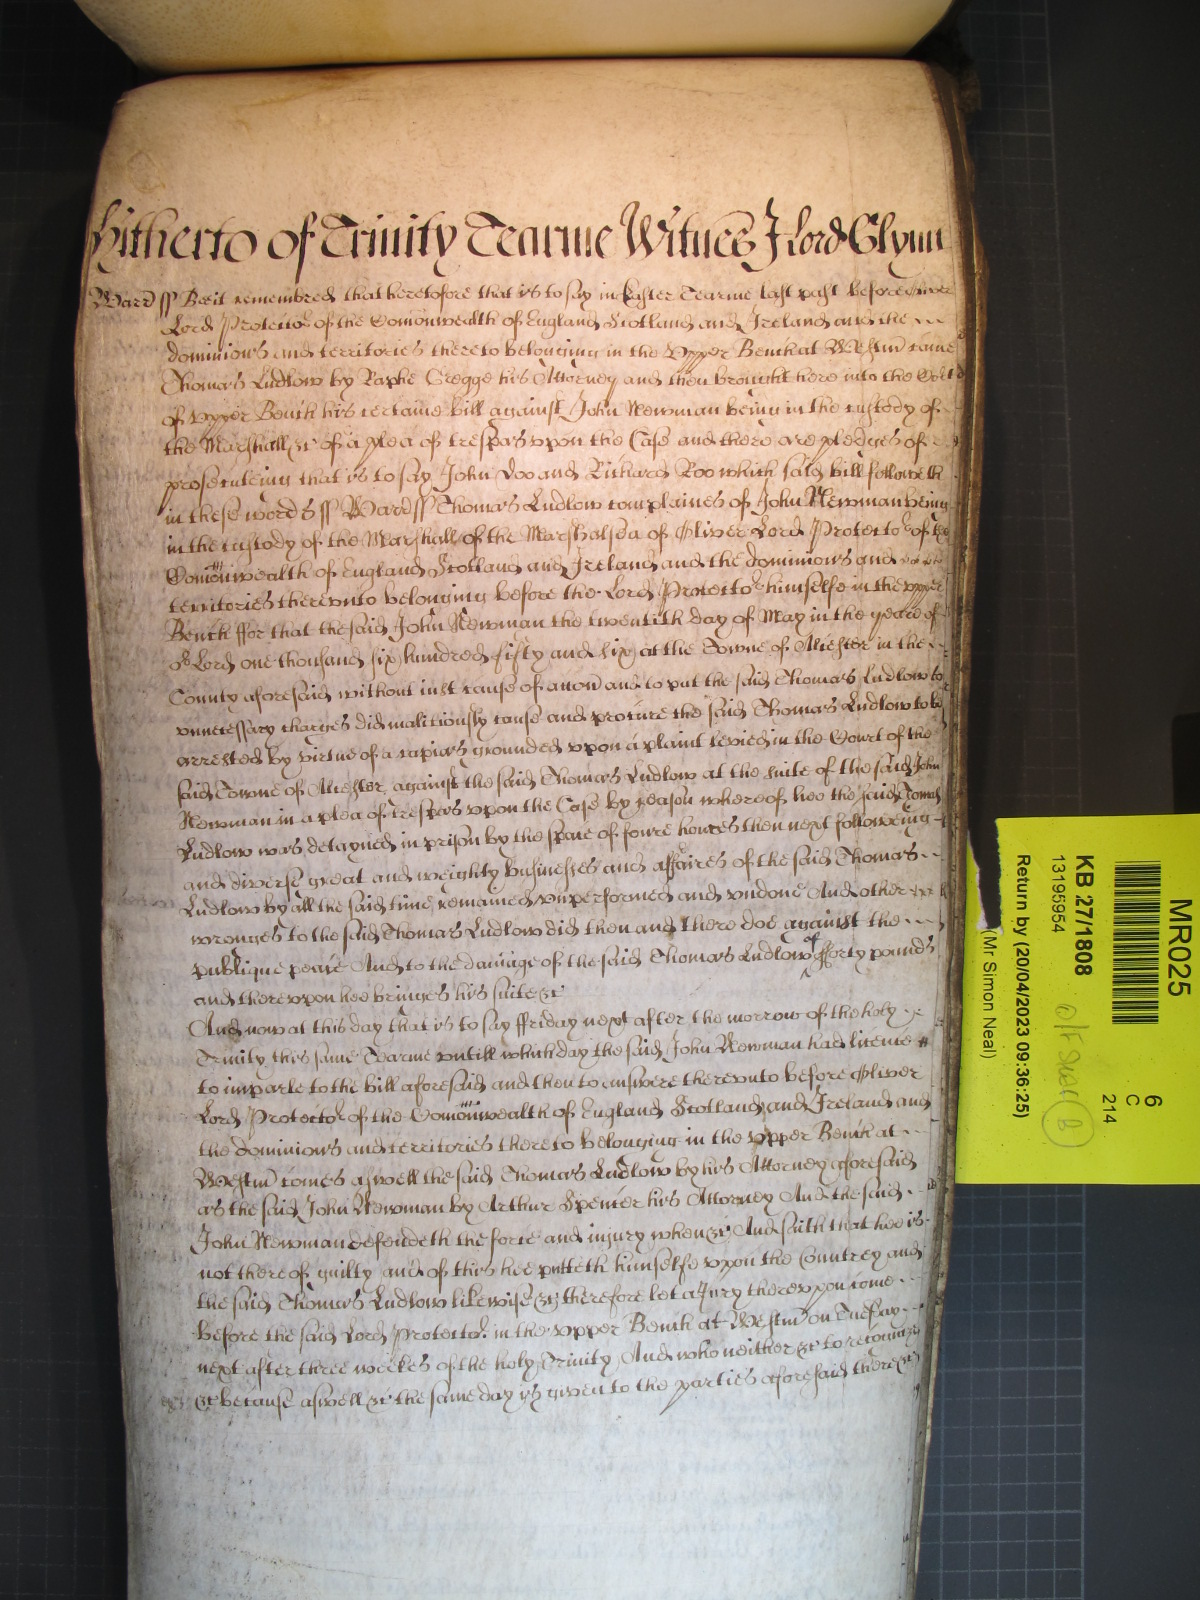 Hitherto of Trinity Tearme Witnes J Lord Glynn
Warr ss Beeit remembred that heretofore that is to say in Easter Tearme last past before Oliver
Lord Protector of the Comonwealth of England Scotland and Ireland and the
dominions and territories thereto belonging in the Upper Bench at Westmr came
Thomas Ludlow by Raphe Gregge his Attorney and then brought here into the Court
of Upper Bench his certaine bill against John Newman being in the custody of
the Marshall &c of a plea of trespas upon the Case and there are pledges of
prosecuteing that is to say John Doo and Richard Roo which said bill followeth
in these words ss Warr ss Thomas Ludlow complaines of John Newman being
in the custody of the Marshall of the Marshalsea of Oliver Lord Protector of the
Comonwealth of England Scotland and Ireland and the dominions and
territories thereunto belonging before the Lord Protector himselfe in the upper
Bench ffor that the said John Newman the twentith day of May in the yeare of
or Lord one thousand six hundred fifty and six at the Towne of Alcester in the
County aforesaid without iust cause of accon and to put the said Thomas Ludlow to
unnecessary charges did malitiously cause and procure the said Thomas Ludlow to be
arrested by virtue of a capias grounded upon a plaint levied in the Court of the
said Towne of Alcester against the said Thomas Ludlow at the suite of the said John
Newman in a plea of trespas upon the Case by reason whereof hee the said Thomas
Ludlow was detayned in prison by the space of foure houres then next followeing
and diverse great and weighty businesses and affaires of the said Thomas
Ludlow by all the said time remained unperformed and undone And other
wronges to the said Thomas Ludlow did then and there doe against the
publique peace And to the damage of the said Thomas Ludlow of fforty pounds
and thereupon hee bringes his suite &c
And now at this day that is to say ffriday next after the morrow of the holy
Trinity this same Tearme untill which day the said John Newman had licence
to imparle to the bill aforesaid and then to answere thereunto before Oliver
Lord Protector of the Comonwealth of England Scotland and Ireland and
the dominions and territories thereto belonging in the upper Bench at
Westmr comes aswell the said Thomas Ludlow by his Attorney aforesaid
as the said John Newman by Arthur Spencer his Attorney And the said
John Newman defendeth the force and injury when &c And saith that hee is
not thereof guilty and of this hee putteth himselfe upon the Countrey and
the said Thomas Ludlow likewise &c therefore let a Jury thereupon come
before the said Lord Protector in the upper Bench at Westmr on Tuesday
next after three weekes of the holy Trinity And who neither &c to recognize
&c because aswell &c the same day is given to the parties aforesaid there &c
MR025
6
C
214
KB 27/1808
13195954
Return by (20/04/2023 09:36:25)
(Mr Simon Neal)